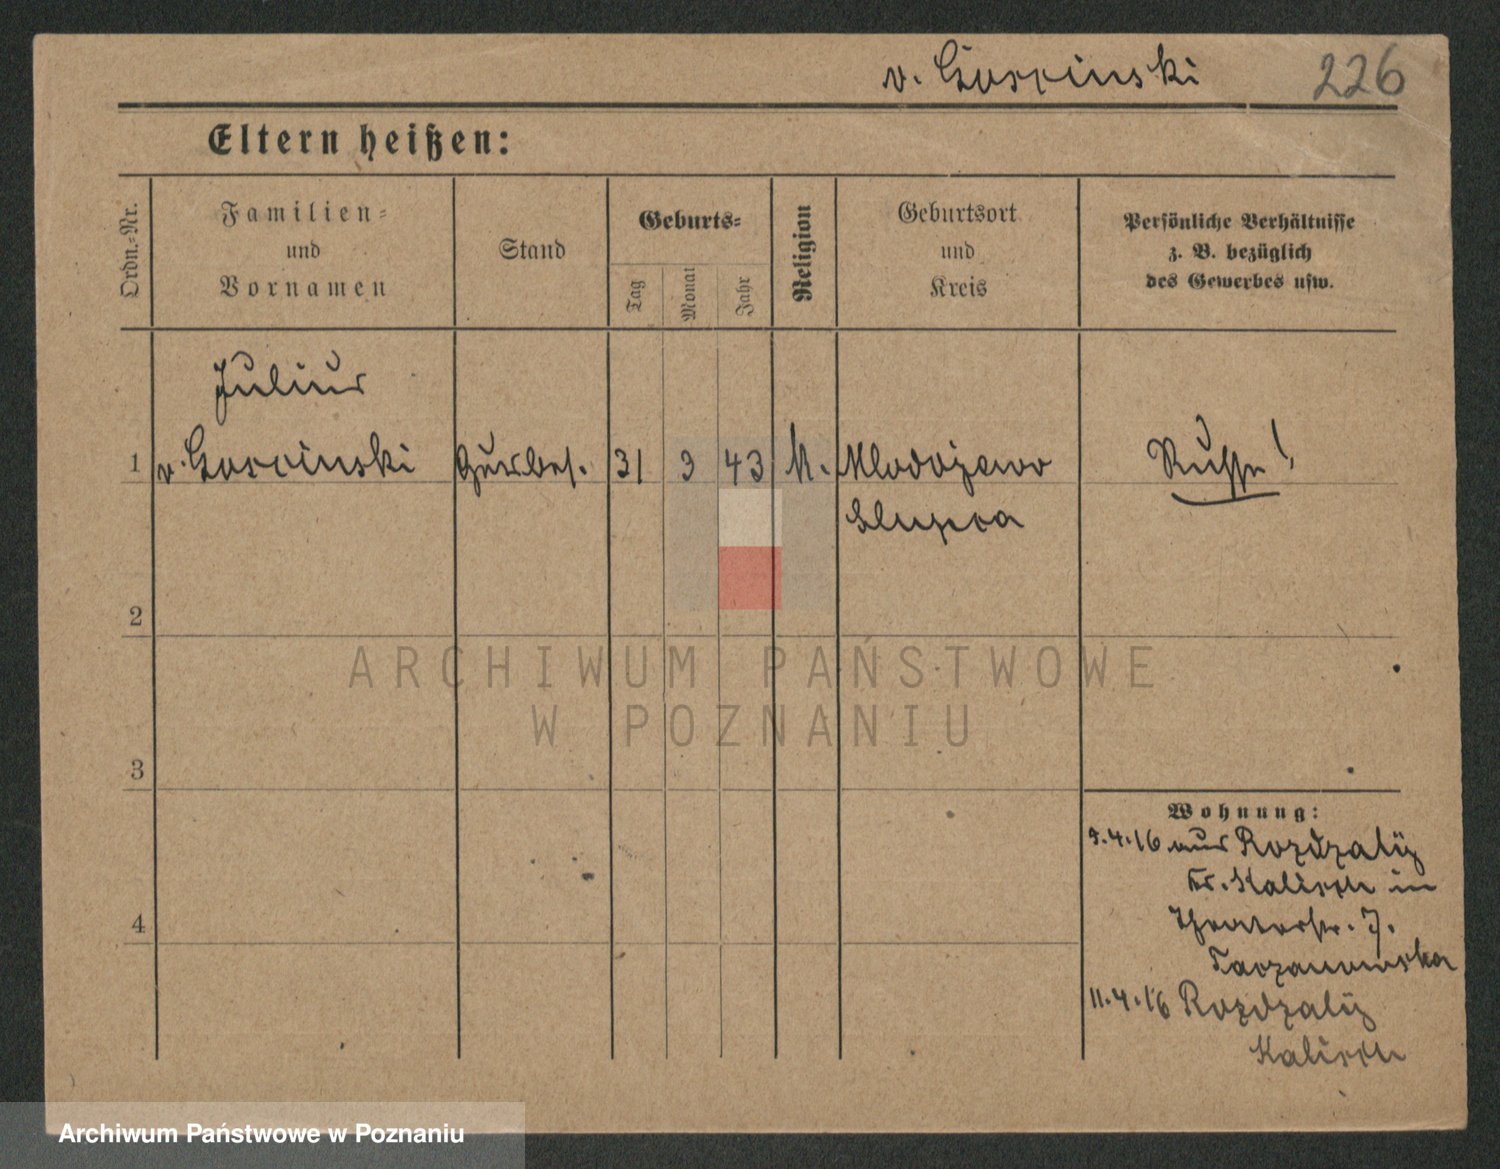 v. Goscinski 226
Eltern heißen:
Ordn.-Nr.
Familien-
und
Vornamen
Stand
Geburts-
Tag
Monat
Jahr
Religion
Geburtsort
und
Kreis
Persönliche Verhältnisse
z. B. bezüglich
des Gewerbes usw.
Julius
1 v. Goscinski Gutsbes. 31 3 43 k. Mlodojewo Russe!
Slupca
2
ARCHIWUM PAŃSTWOWE
W POZNANIU
3
Wohnung:
9.4.16 aus Rozdzaly
Kr. Kalisch in
Theaterstr. 7.
Taczanowska
4
11.4.16 Rozdzaly
Kalisch
Archiwum Państwowe w Poznaniu